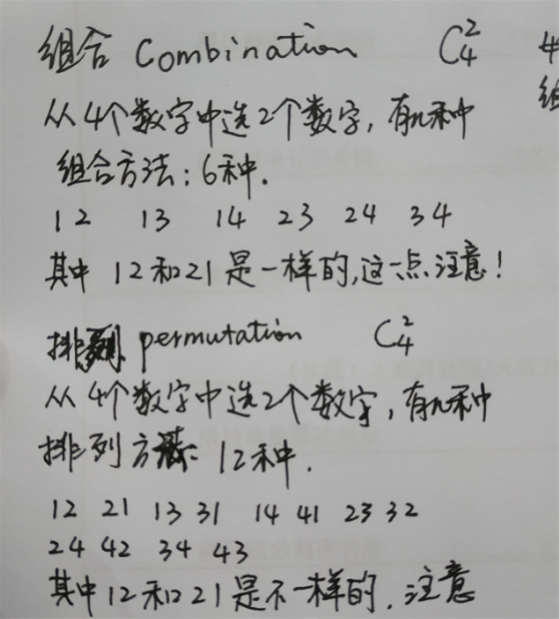 组合 Combination C₄² 4
组
从4个数字中选2个数字,有几种
组合方法:6种.
12 13 14 23 24 34
其中 12和21是一样的,这一点注意!
排列 permutation C₄²
从4个数字中选2个数字,有几种
排列方法: 12种.
12 21 13 31 14 41 23 32
24 42 34 43
其中12和21是不一样的.注意